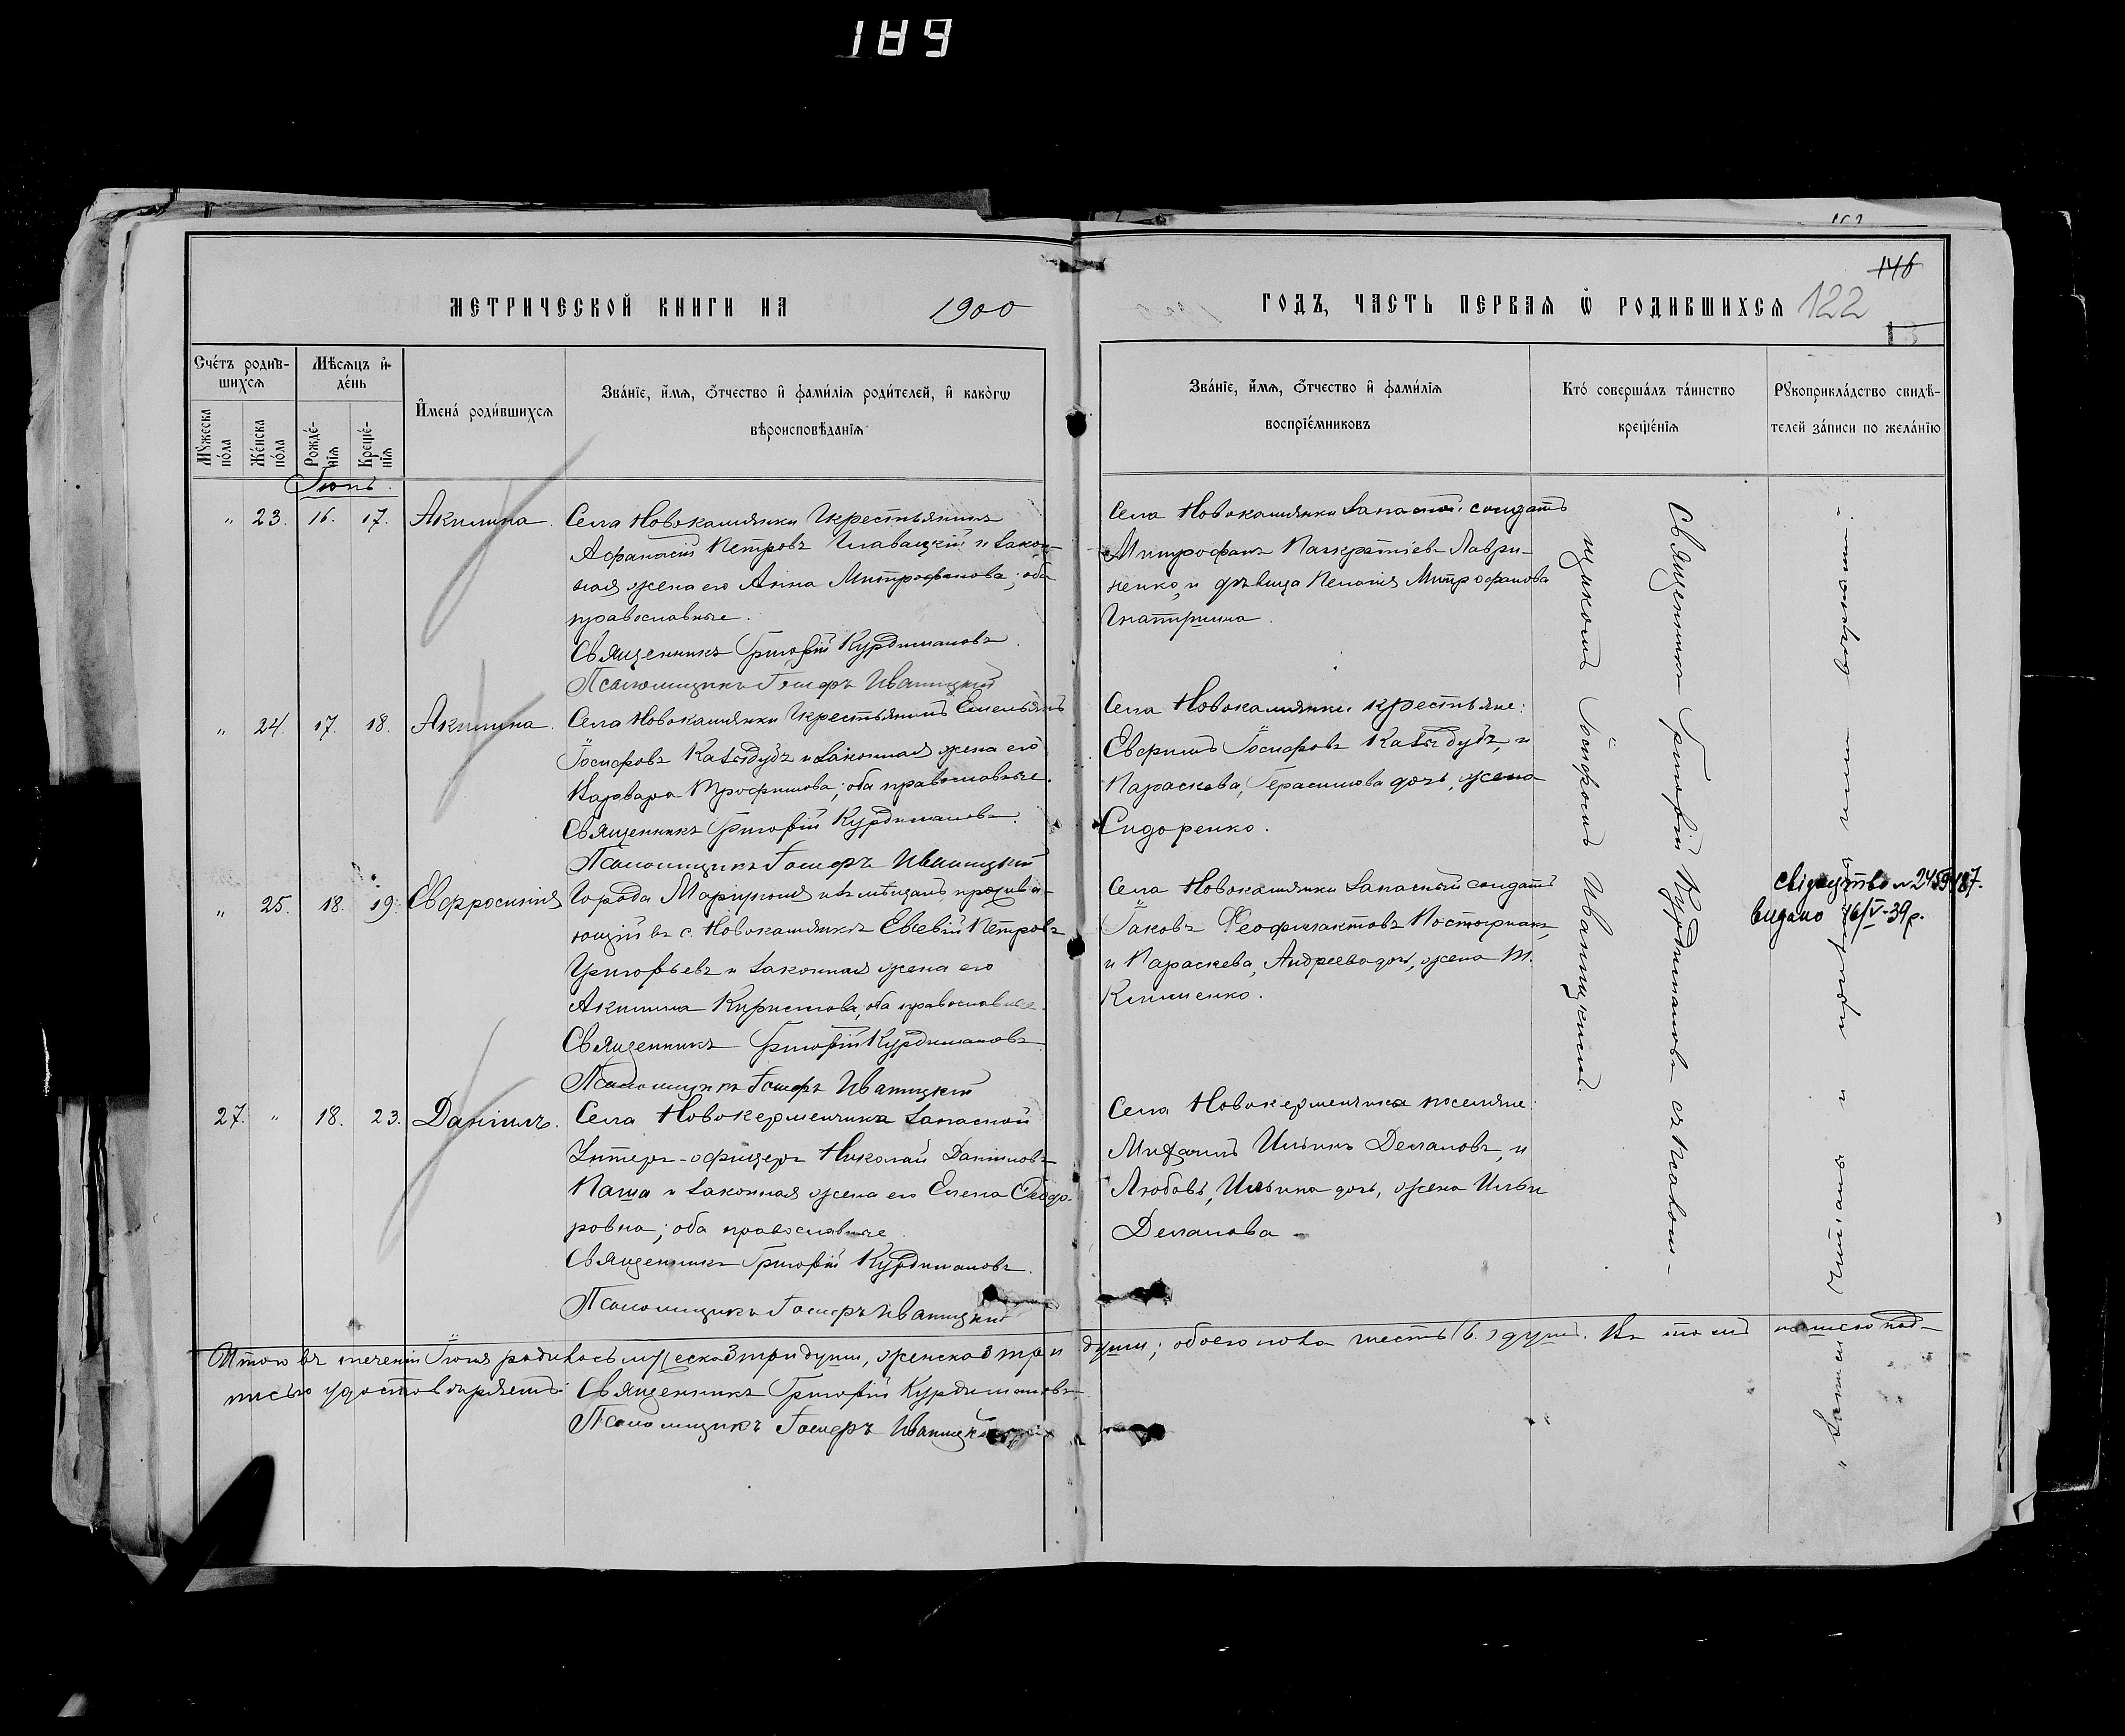 189
146
МЕТРИЧЕСКОЙ КНИГИ НА 1900 ГОДЪ, ЧАСТЬ ПЕРВАЯ Ѡ РОДИВШИХСЯ 122
13
Счétъ родив-
шихся
Мѣсяцъ и
день
Имена родившихся
Званіе, имя, отчество и фамилія родителей, и какогѡ
вѣроисповѣданія
Званіе, имя, отчество и фамилія
воспріемниковъ
Кто совершалъ таинство
крещенія
Рукоприкладство свидѣ-
телей записи по желанію
Мужеска
пола
Женска
пола
Рожде-
нія
Креще-
нія
Іюнь.
" 23. 16. 17. Акилина. Села Новокаменки Крестьянинъ
Афанасій Петровъ Главацкій и закон-
ная жена его Анна Митрофанова; оба
православные.
Священникъ Григорій Курдимановъ.
Псаломщикъ Іосифъ Иваницкій
Села Новокаменки Запасной солдатъ
Митрофанъ Панкратіевъ Лаври-
ненко, и дѣвица Пелагія Митрофанова
" 24. 17. 18. Акилина. Села Новокаменки Крестьянинъ Емельянъ
Іосифовъ Казыдубъ и законная жена его
Варвара Трофимова; оба православные.
Священникъ Григорій Курдимановъ.
Псаломщикъ Іосифъ Иваницкій
Села Новокаменки крестьяне:
Іосифовъ Казыдубъ, и
Параскева, Герасимова дочь, жена
Сидоренко.
" 25. 18. 19. Евфросинія Города Маріуполя мѣщанъ, прожива-
ющій въ с. Новокаменкѣ Евсевій Петровъ
Григорьевъ и законная жена его
Акилина Кирилова, оба православные.
Священникъ Григорій Курдимановъ
Псаломщикъ Іосифъ Иваницкій
Села Новокаменки Запасный солдатъ
Іаковъ Феофилактовъ
и Параскева, Андреева дочь, жена М.
Клименко.
свідоцтво № 2459487.
видано 16/V-39р.
27. " 18. 23. Даніилъ. Села Новокерменчика Запасной
Унтеръ-офицеръ Николай Даниловъ
Паша и законная жена его Елена Ѳеодо-
ровна; оба православные.
Священникъ Григорій Курдимановъ.
Псаломщикъ Іосифъ Иваницкій
Села Новокерменчика поселяне:
Михаилъ Ильинъ Делановъ, и
Любовь, Ильина дочь, жена Ильи
Деланова
Священникъ Григорій Курдимановъ съ Псалом-
щикомъ Іосифомъ Иваницкимъ.
" Записи читаны и
Итого въ теченіи Іюня родилось мужеска 3 три души, женска 3 три души; обоего пола шесть (6.) душъ. Въ томъ под-
писью удостовѣряемъ: Священникъ Григорій Курдимановъ
Псаломщикъ Іосифъ Иваницкій